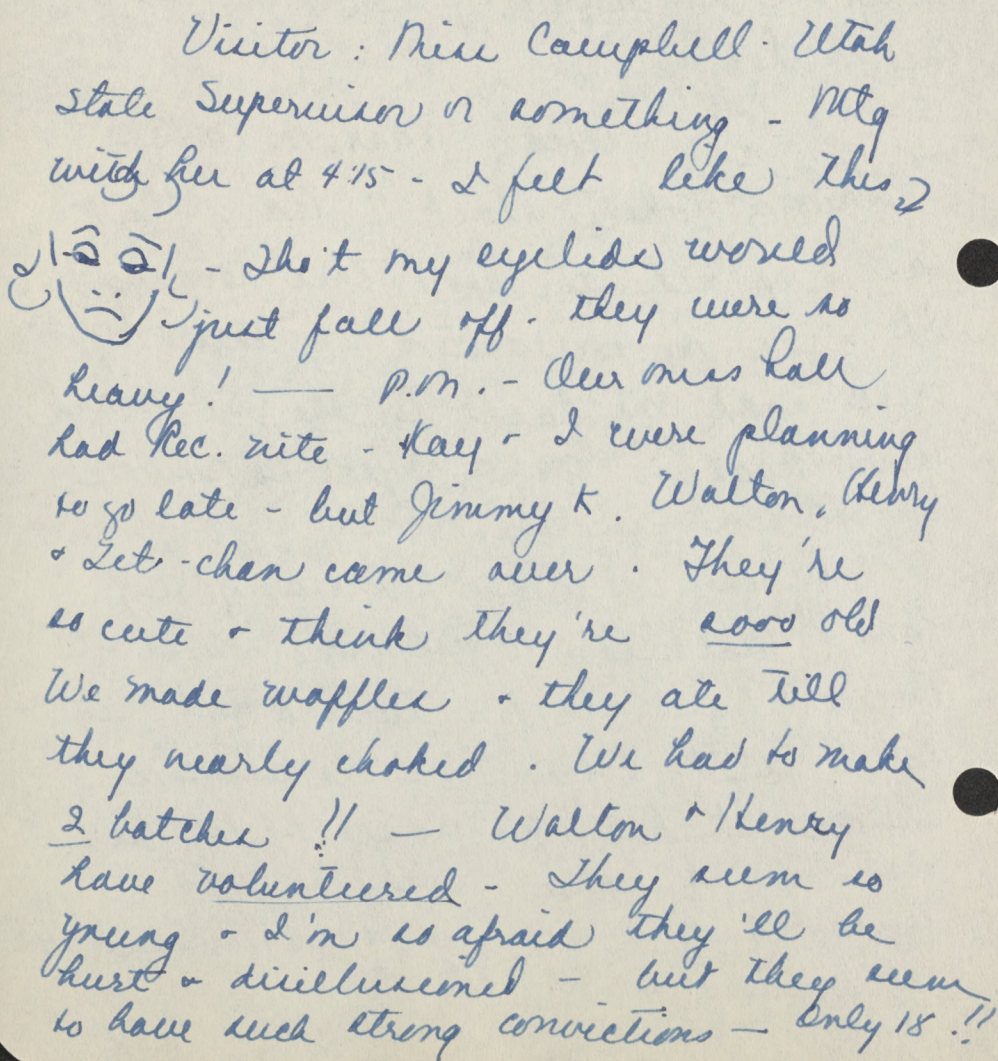 Visitor : Miss Campbell - Utah
state Supervisor or something - Mtg
with her at 4:15 - I felt like this
- Tho't my eyelids would
just fall off - they were so
heavy! — P.M. - Our mess hall
had Rec. nite - Kay + I were planning
to go late - but Jimmy K. Walton, Henry
+ Tet-chan came over . They're
so cute + think they're sooo old
We made waffles + they ate till
they nearly choked . We had to make
2 batches !! — Walton + Henry
have volunteered - They seem so
young + I'm so afraid they'll be
hurt + disillusioned - but they seem
to have such strong convictions — Only 18 !!